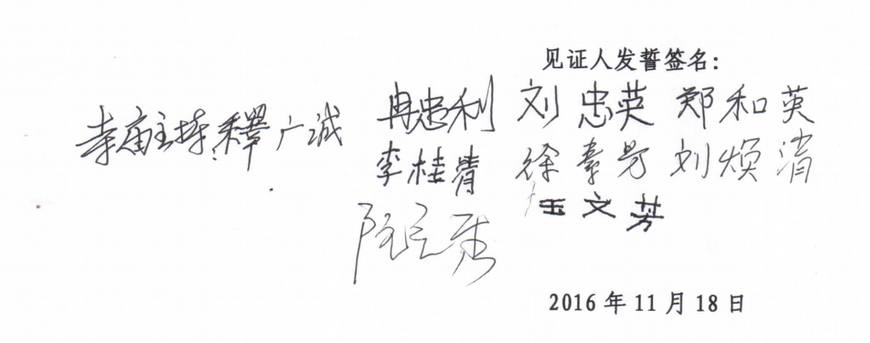 见证人发誓签名：
寺庙主持：释广诚 冉忠利 刘忠英 郑和英
李桂清 徐素芳 刘焕清
文芳
2016年11月18日